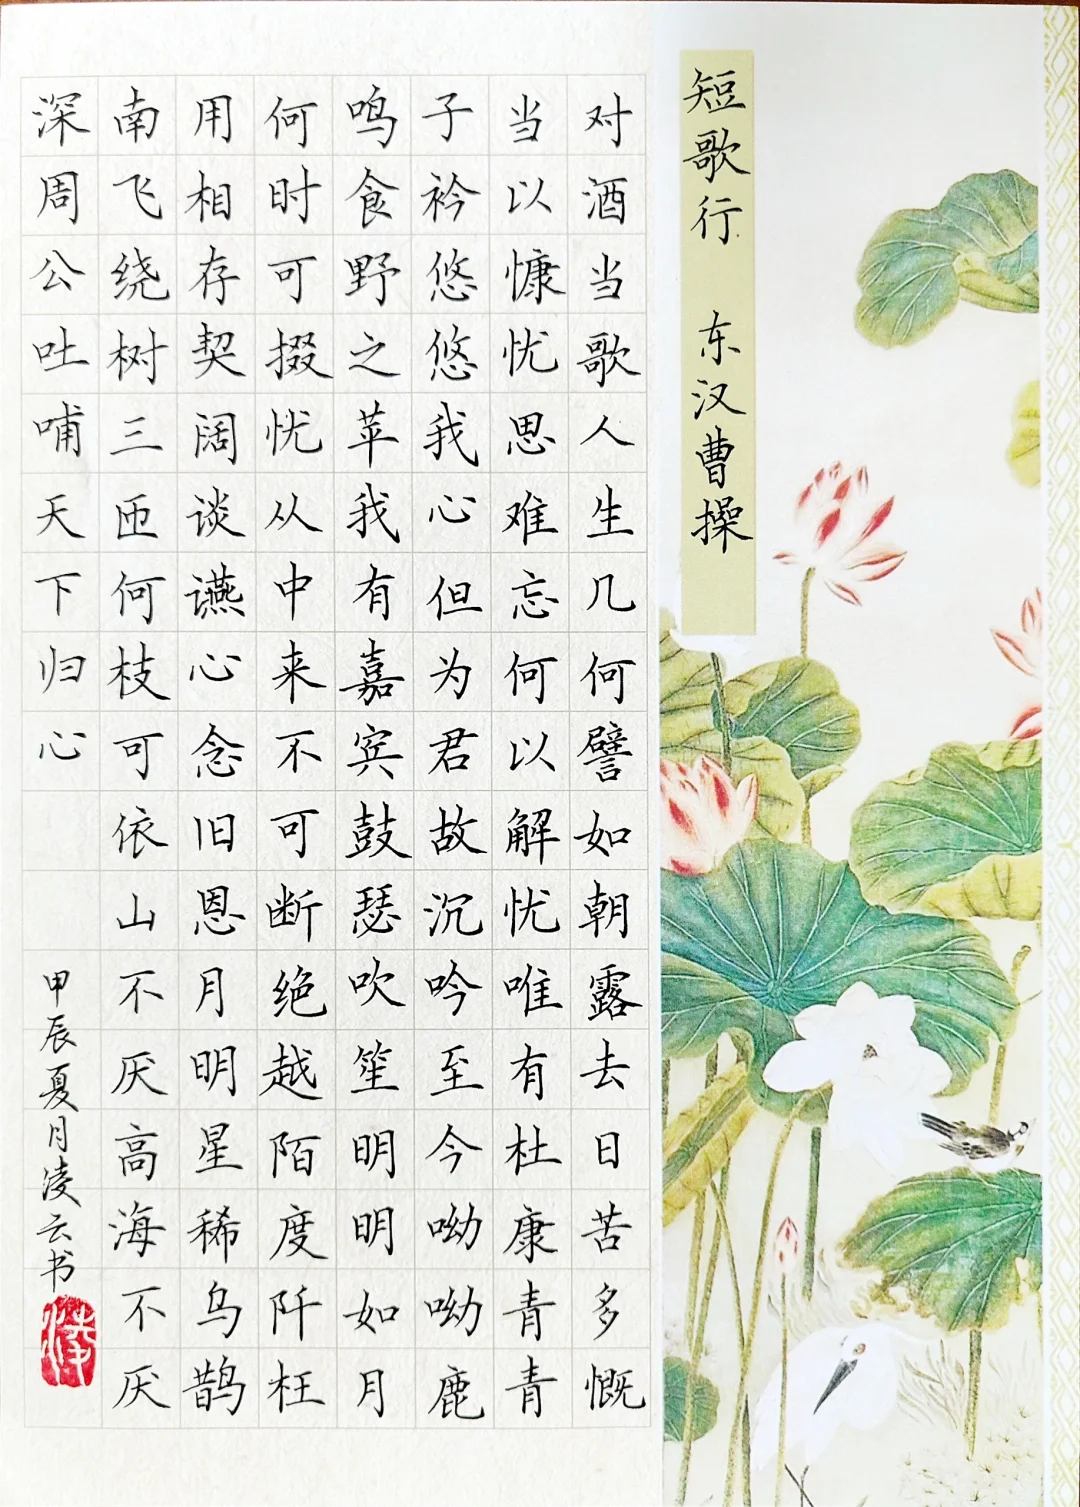 短歌行 东汉曹操
对酒当歌人生几何譬如朝露去日苦多慨
当以慷忧思难忘何以解忧唯有杜康青青
子衿悠悠我心但为君故沉吟至今呦呦鹿
鸣食野之苹我有嘉宾鼓瑟吹笙明明如月
何时可掇忧从中来不可断绝越陌度阡枉
用相存契阔谈䜩心念旧恩月明星稀乌鹊
南飞绕树三匝何枝可依山不厌高海不厌
深周公吐哺天下归心
甲辰夏月凌云书